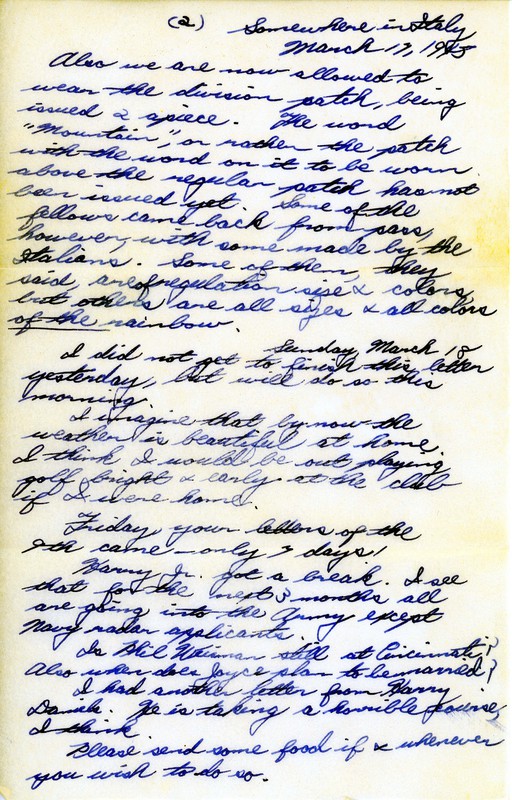 (2) Somewhere in Italy
March 17, 1945
Also we are now allowed to
wear the division patch, being
issued 2 apiece. The word
"Mountain", or rather the patch
with the word on it to be worn
above the regular patch has not
been issued yet. Some of the
fellows came back from pass,
however, with some made by the
Italians. Some of them, they
said, are of regulation size & colors,
but others are all sizes & all colors
of the rainbow.
Sunday, March 18
I did not get to finish this letter
yesterday, but will do so this
morning.
I imagine that by now the
weather is beautiful at home.
I think I would be out playing
golf bright & early at the club
if I were home.
Friday your letters of the
9th came - only 7 days!
Harry Jr. got a break. I see
that for the next 3 months all
are going into the Army except
Navy radar applicants.
Is Phil Weisman still at Cincinnati?
Also when does Joyce plan to be married?
I had another letter from Harry
He is taking a horrible course,
I think.
Please send some food if & whenever
you wish to do so.